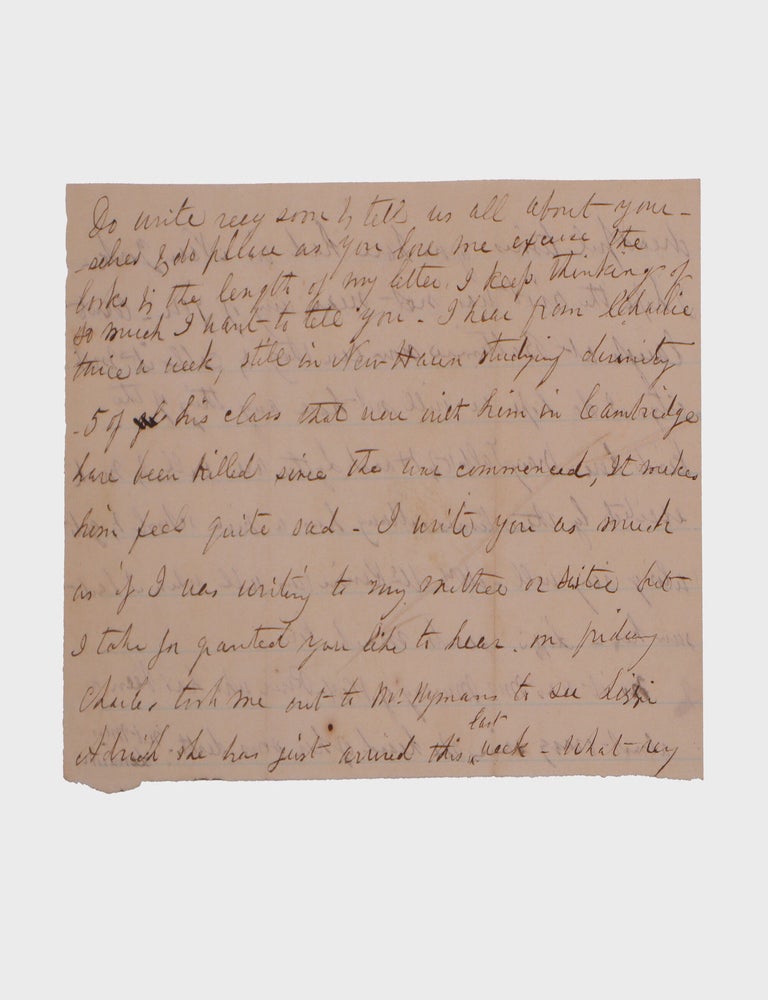 Do write very soon & tell us all about your-
-selves & do please as you love me excuse the
looks & the length of my letter. I keep thinking of
so much I want to tell you - I hear from Charlie
twice a week, still in New Haven studying divinity
- 5 of his class that were with him in Cambridge
have been killed since the war commenced, It makes
him feel quite sad - I write you as much
as if I was writing to my mother or sister but
I take for granted you like to hear. on friday
Charles took me out to Mr Wymans to see Lizzie
she has just arrived this last week - what